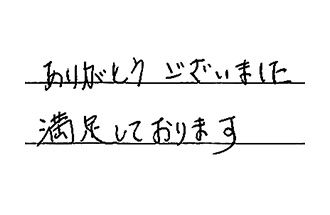 ありがとうございました
満足しております